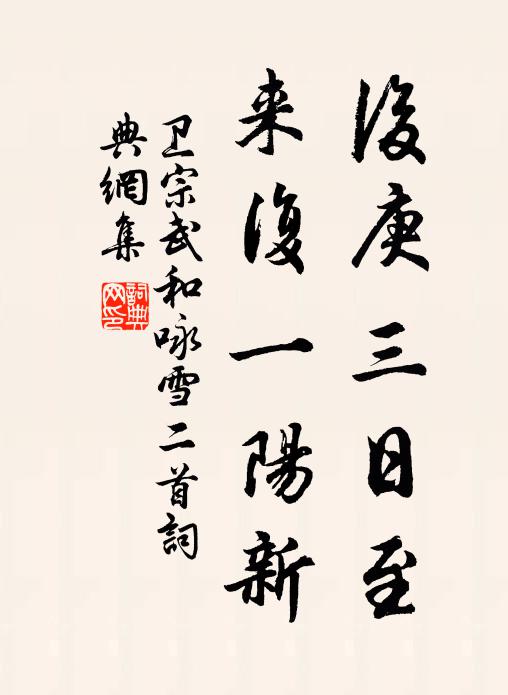 後庚三日至
来復一陽新
卫宗武和咏雪二首詞
典網集
詞典网印